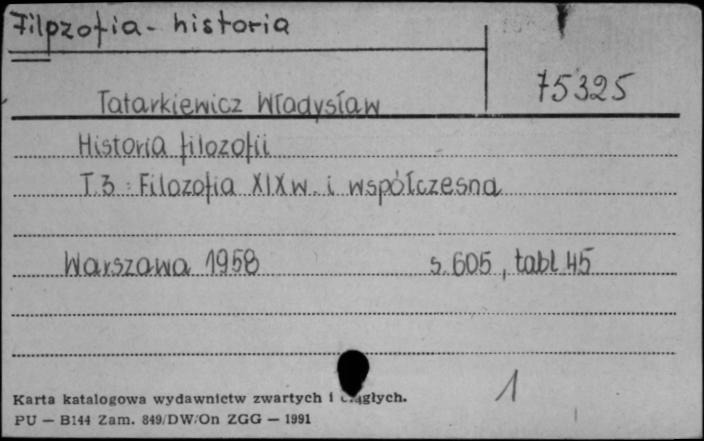 Filozofia - historia
75325
Tatarkiewicz Władysław
Historia filozofii
T.3 : Filozofia XIX w. i współczesna
Warszawa 1958 s. 605, tabl. 45
1
Karta katalogowa wydawnictw zwartych i ciągłych.
PU — B144 Zam. 849/DW/On ZGG — 1991